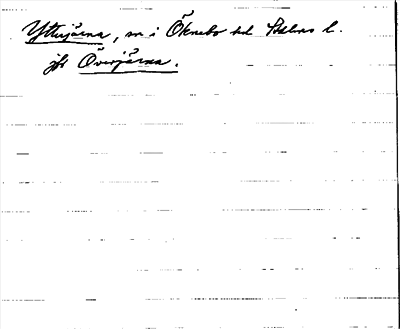 Ytterjärna, sn i Öknebo hd Sthlms l.
jfr Överjärna.